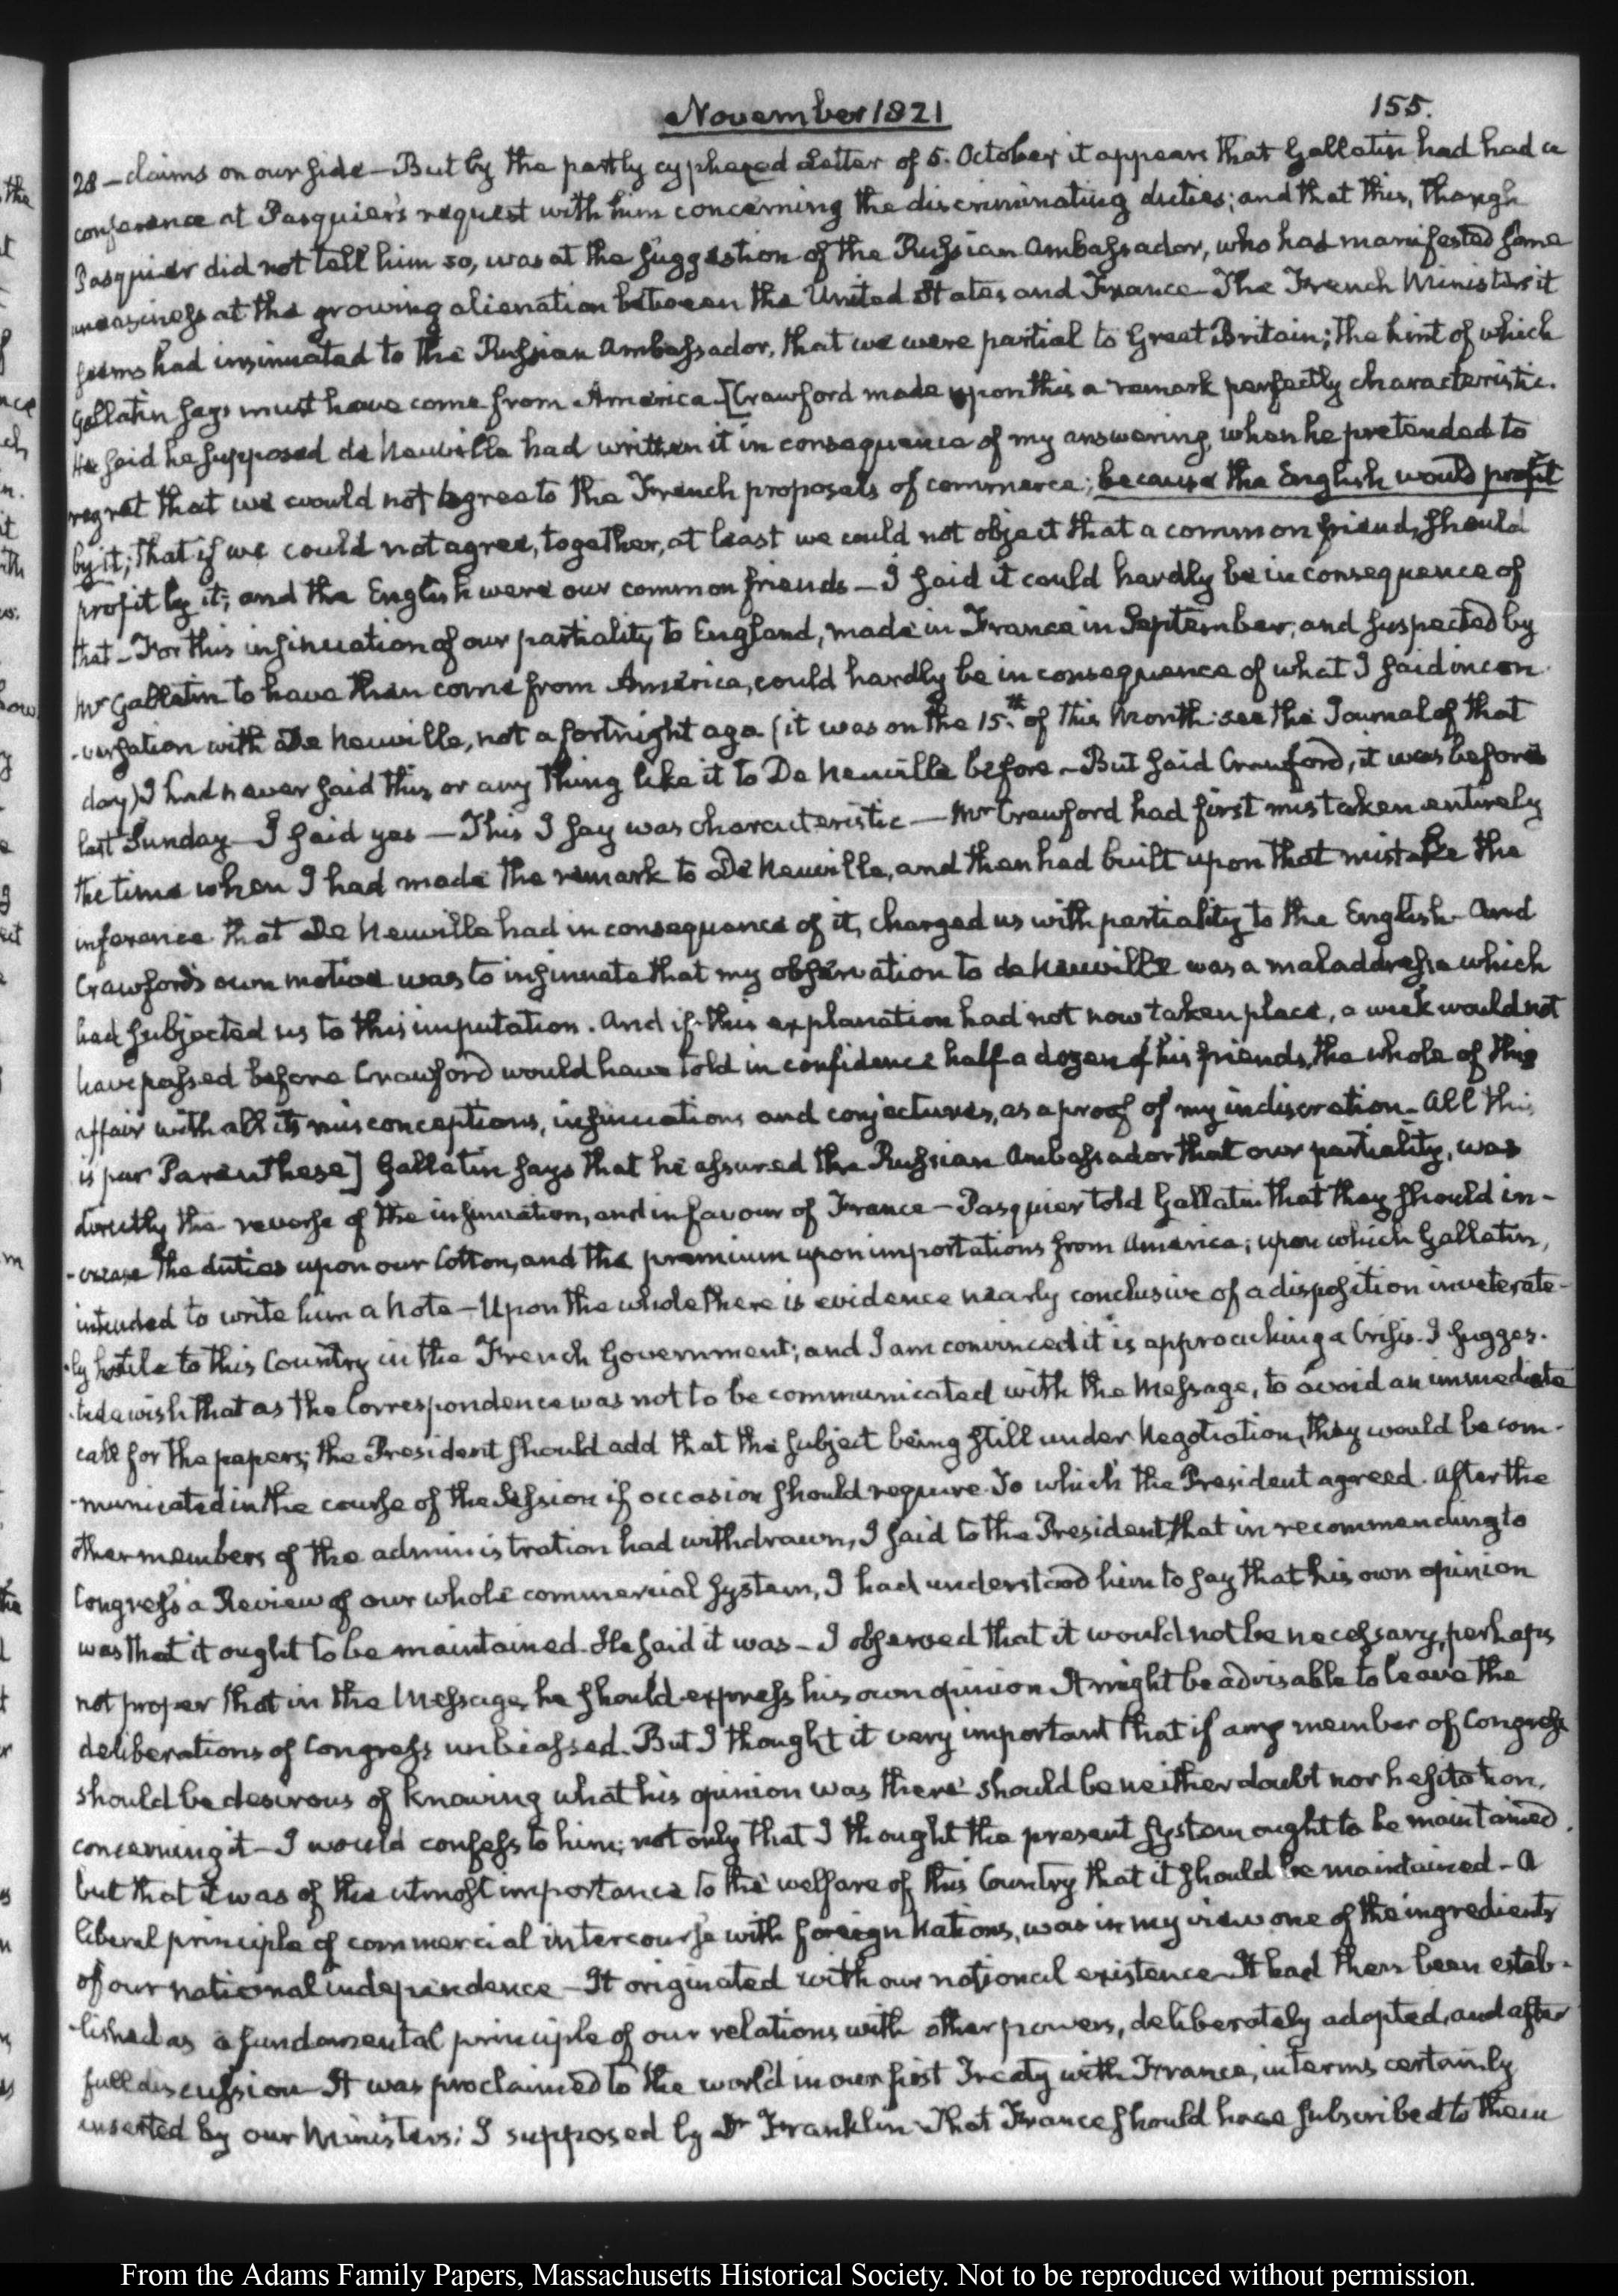 November 1821
155.
28 — claims on our side — But by the partly cyphered Letter of 5. October it appears that Gallatin had had a
conference at Pasquier's request with him concerning the discriminating duties; and that this, though
Pasquier did not tell him so, was at the suggestion of the Russian Ambassador, who had manifested some
uneasiness at the growing alienation between the United States and France — The French Ministers it
seems had insinuated to the Russian Ambassador, that we were partial to Great Britain; the hint of which
Gallatin says must have come from America. [Crawford made upon this a remark perfectly characteristic.
He said he supposed de Neuville had written it in consequence of my answering, when he pretended to
regret that we could not agree to the French proposals of commerce; because the English would profit
by it; that if we could not agree, together, at least we could not object that a common friend, should
profit by it; and the English were our common friends — I said it could hardly be in consequence of
that — For this insinuation of our partiality to England, made in France in September, and suspected by
Mr Gallatin to have then come from America, could hardly be in consequence of what I said in con-
-versation with De Neuville, not a fortnight ago (it was on the 15.th of this Month: see the Journal of that
day) I had never said this, or any thing like it to De Neuville before — But said Crawford, it was before
last Sunday — I said yes — This I say was characteristic — Mr Crawford had first mistaken entirely
the time when I had made the remark to De Neuville, and then had built upon that mistake the
inference that De Neuville had in consequence of it, charged us with partiality to the English — And
Crawford's own motive was to insinuate that my observation to de Neuville was a maladdresse which
had subjected us to this imputation. And if this explanation had not now taken place, a week would not
have passed before Crawford would have told in confidence half a dozen of his friends, the whole of this
affair with all its misconceptions, insinuations and conjectures, as a proof of my indiscretion — All this
is par Parenthese] Gallatin says that he assured the Russian Ambassador that our partiality, was
directly the reverse of the insinuation, and in favour of France — Pasquier told Gallatin that they should in-
-crease the duties upon our Cotton, and the premium upon importations from America; upon which Gallatin,
intended to write him a Note — Upon the whole there is evidence nearly conclusive of a disposition inveterate-
-ly hostile to this Country in the French Government; and I am convinced it is approaching a Crisis. I sugges-
-ted a wish that as the Correspondence was not to be communicated with the Message, to avoid an immediate
call for the papers; the President should add that the subject being still under Negotiation, they would be com-
-municated in the course of the Session if occasion should require. To which the President agreed. After the
other members of the administration had withdrawn, I said to the President, that in recommending to
Congress a Review of our whole commercial system, I had understood him to say that his own opinion
was that it ought to be maintained. He said it was — I observed that it would not be necessary, perhaps
not proper that in the Message, he should express his own opinion It might be advisable to leave the
deliberations of Congress unbiassed. But I thought it very important that if any member of Congress
should be desirous of knowing what his opinion was there should be neither doubt nor hesitation,
concerning it — I would confess to him; not only that I thought the present system ought to be maintained,
but that it was of the utmost importance to the welfare of this Country that it should be maintained — A
liberal principle of commercial intercourse with foreign Nations, was in my view one of the ingredients
of our national independence — It originated with our national existence It had then been estab-
-lished as a fundamental principle of our relations with other powers, deliberately adopted, and after
full discussion It was proclaimed to the world in our first Treaty with France, in terms certainly
inserted by our Ministers; I supposed by Dr Franklin That France should have subscribed to them
From the Adams Family Papers, Massachusetts Historical Society. Not to be reproduced without permission.